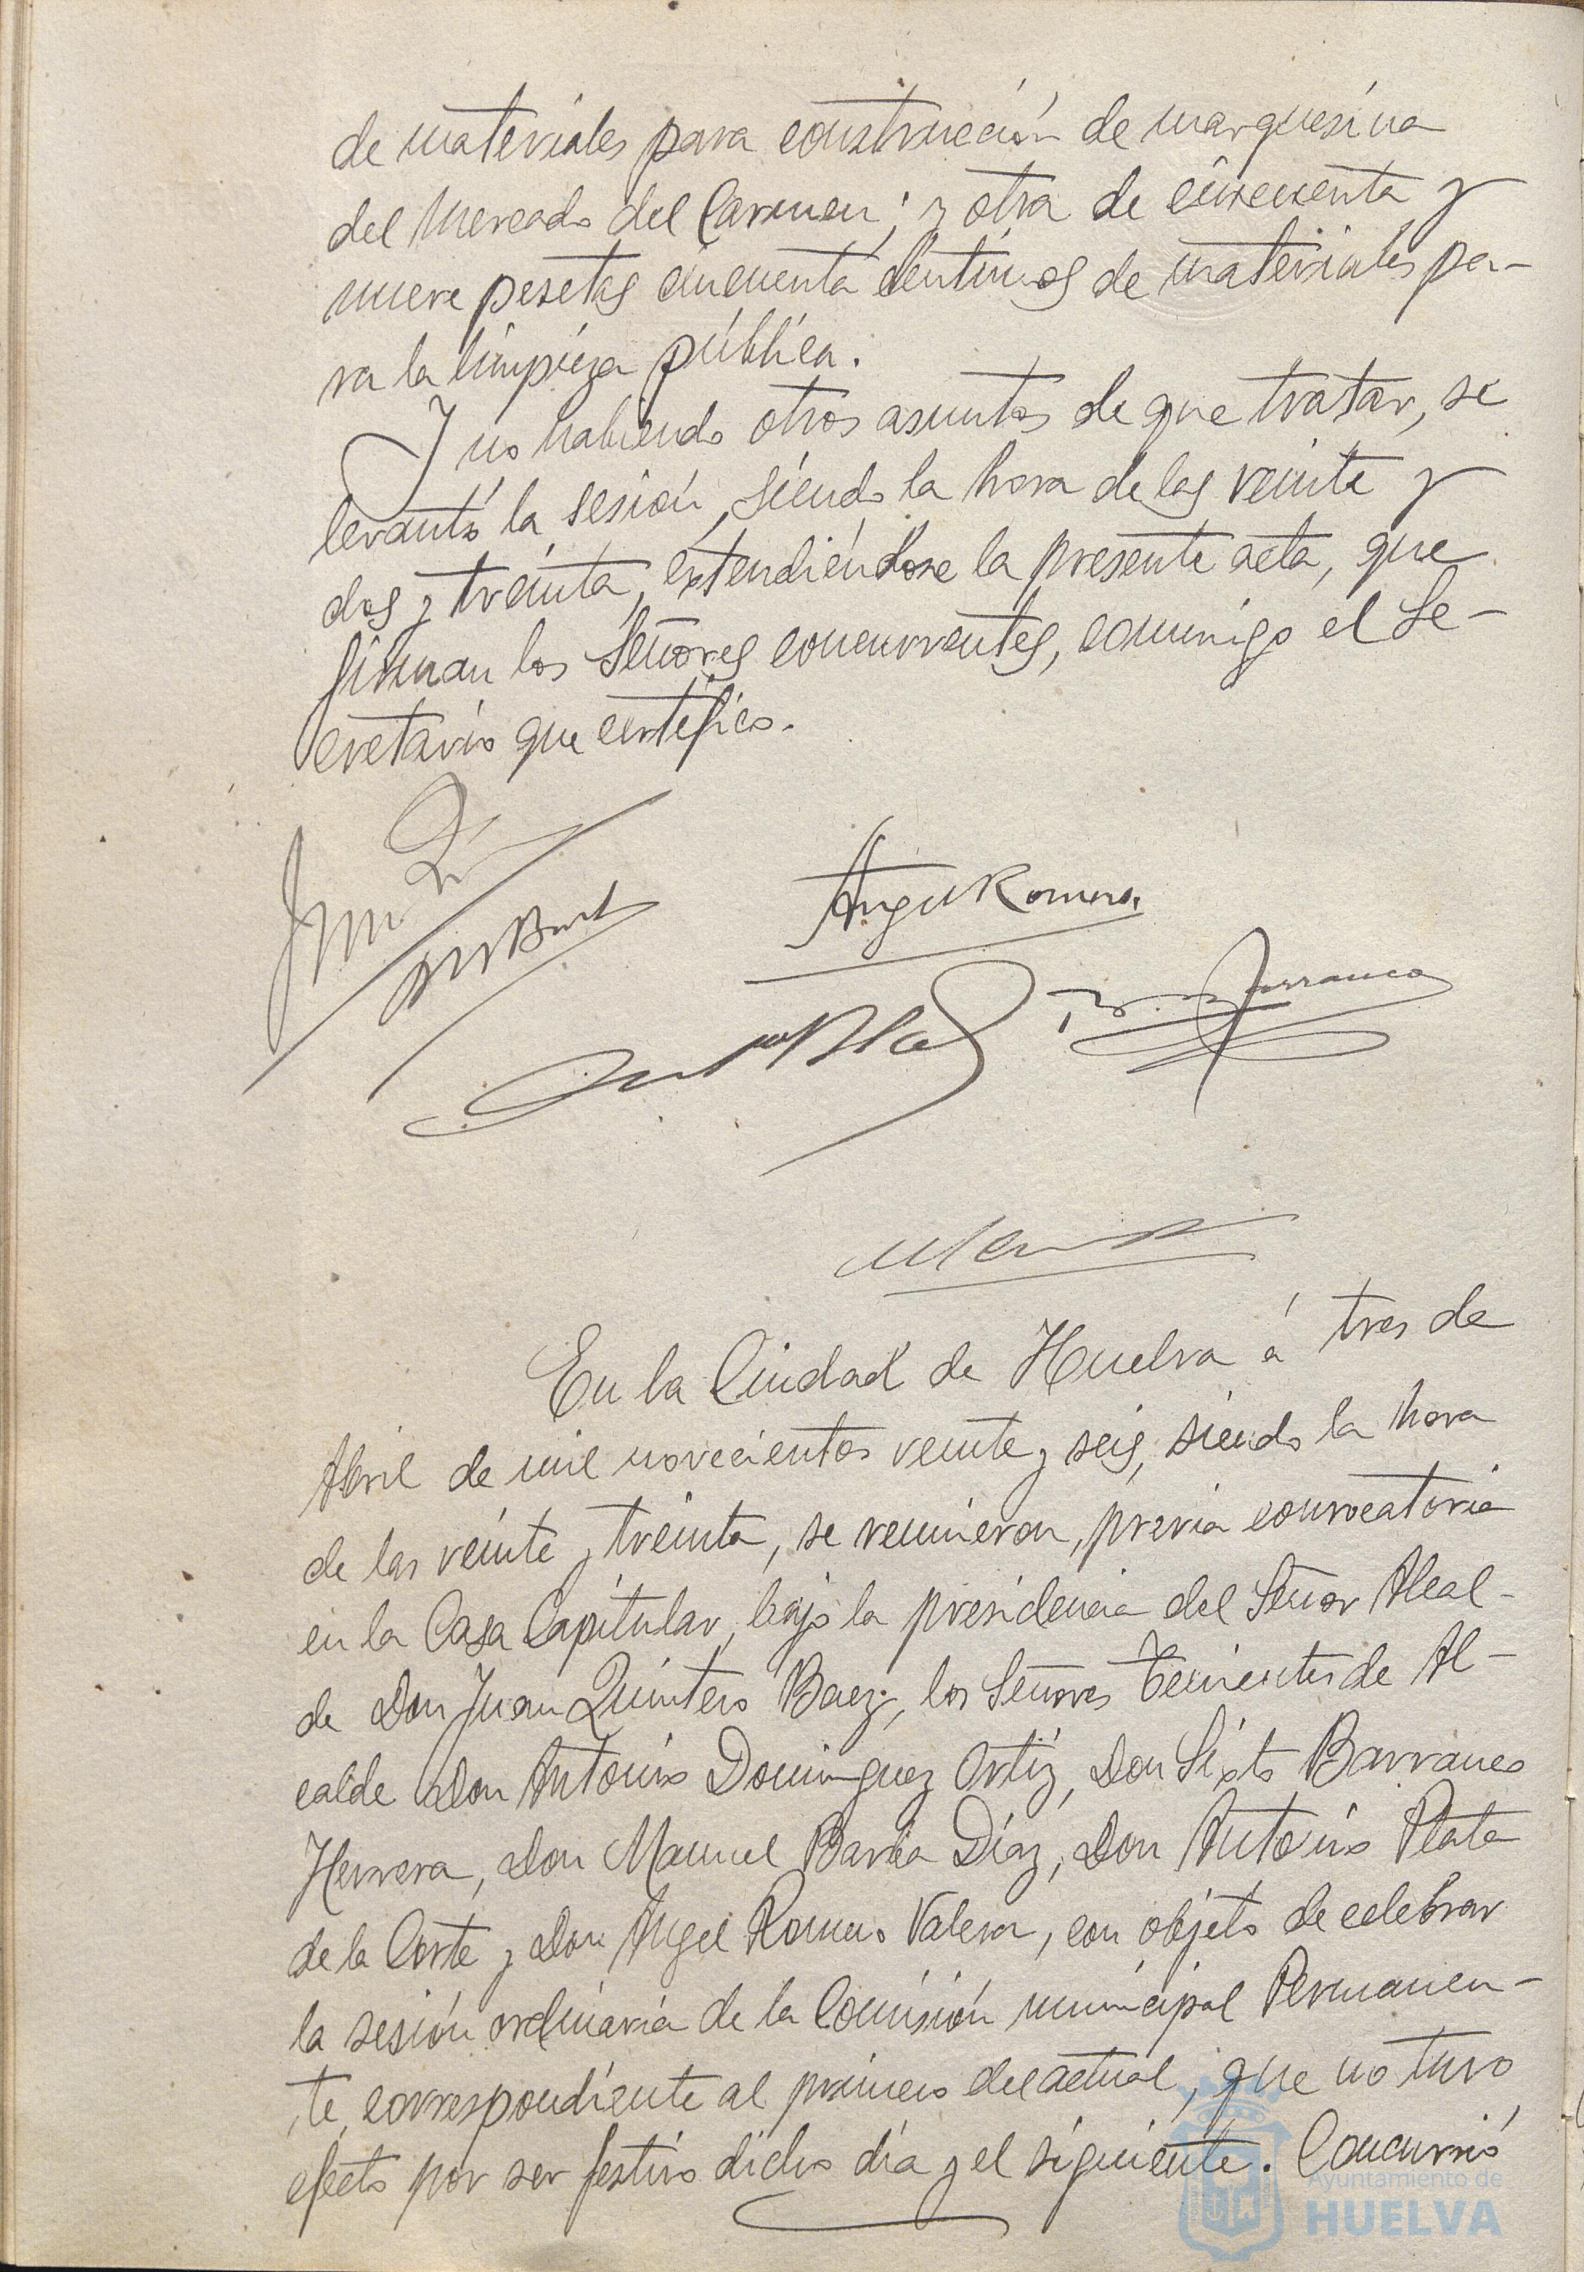 de materiales para construcción de marquesina
del Mercado del Carmen; y otra de cincuenta y
nueve pesetas cincuenta céntimos de materiales pa-
ra la limpieza pública.
Y no habiendo otros asuntos de que tratar, se
levantó la sesión, siendo la hora de las veinte y
dos y treinta, extendiéndose la presente acta, que
firman los Señores concurrentes, conmigo el Se-
cretario que certifico.
Angel Romero
Barranco
En la Ciudad de Huelva á tres de
Abril de mil novecientos veinte y seis, siendo la hora
de las veinte y treinta, se reunieron, previa convocatoria
en la Casa Capitular, bajo la presidencia del Señor Alcal-
de Don Juan Quintero Baez, los Señores Tenientes de Al-
calde Don Antonio Dominguez Ortiz, Don Sixto Barranco
Herrera, Don Manuel Barba Díaz, Don Antonio Plata
de la Corte y Don Angel Romero Valera, con objeto de celebrar
la sesión ordinaria de la Comisión municipal Permanen-
te, correspondiente al primero del actual, que no tuvo
efecto por ser festivo dicho día y el siguiente. Concurrió
Ayuntamiento de
HUELVA